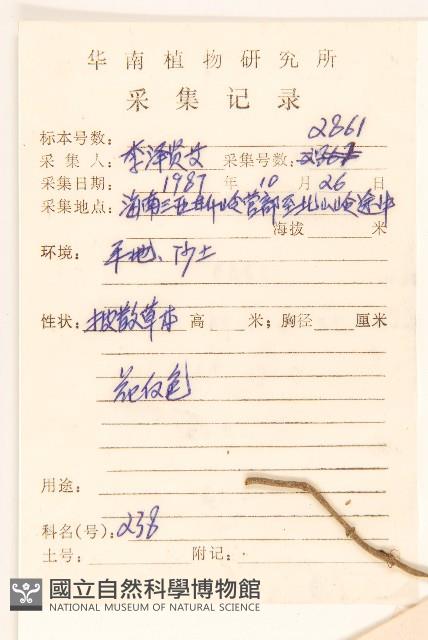 华南植物研究所
采集记录
标本号数: 2861
采集人: 李泽贤 采集号数:
采集日期: 1987 年 10 月 26 日
采集地点: 海南三亚 岭营部至北山岭途中
海拔 米
环境: 平地、沙土
性状: 披散草本 高 米; 胸径 厘米
花红色
用途:
科名(号): 238
土号: 附记:
國立自然科學博物館
NATIONAL MUSEUM OF NATURAL SCIENCE